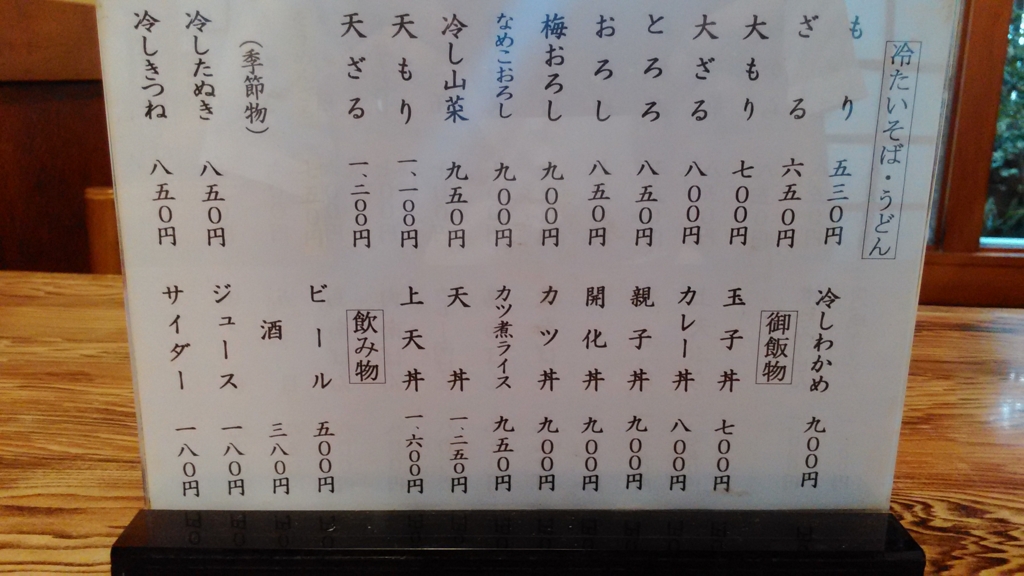 冷たいそば・うどん
もり 五三〇円
ざる 六五〇円
大もり 七〇〇円
大ざる 八〇〇円
とろろ 八五〇円
おろし 八五〇円
梅おろし 九〇〇円
なめこおろし 九〇〇円
冷し山菜 九五〇円
天もり 一、一〇〇円
天ざる 一、二〇〇円
(季節物)
冷したぬき 八五〇円
冷しきつね 八五〇円
冷しわかめ 九〇〇円
御飯物
玉子丼 七〇〇円
カレー丼 八〇〇円
親子丼 九〇〇円
開化丼 九〇〇円
カツ丼 九〇〇円
カツ煮ライス 九五〇円
天丼 一、二五〇円
上天丼 一、六〇〇円
飲み物
ビール 五〇〇円
酒 三八〇円
ジュース 一八〇円
サイダー 一八〇円